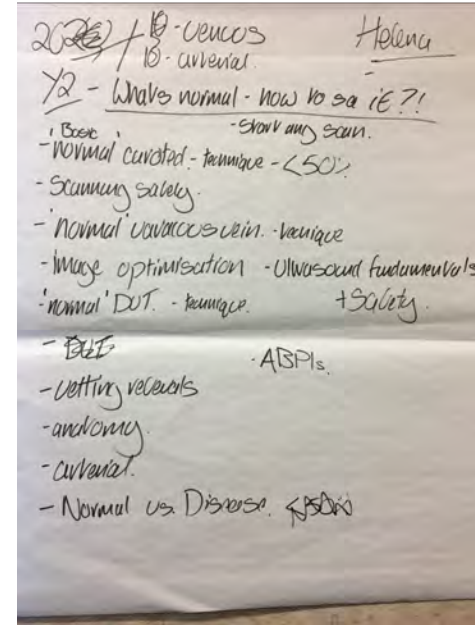 10 - venous Helena
10 - arterial.
Y2 - What's normal - how to say it?!
- Start any scan.
'Basic'
- 'normal' carotid - technique - <50%
- Scanning safely.
- 'normal' varicous vein. - technique
- Image optimisation - Ultrasound fundamentals
+ Safety.
- 'normal' DVT. - technique.
- ABPIs.
- vetting referrals
- anatomy.
- arterial.
- Normal vs. Disease.